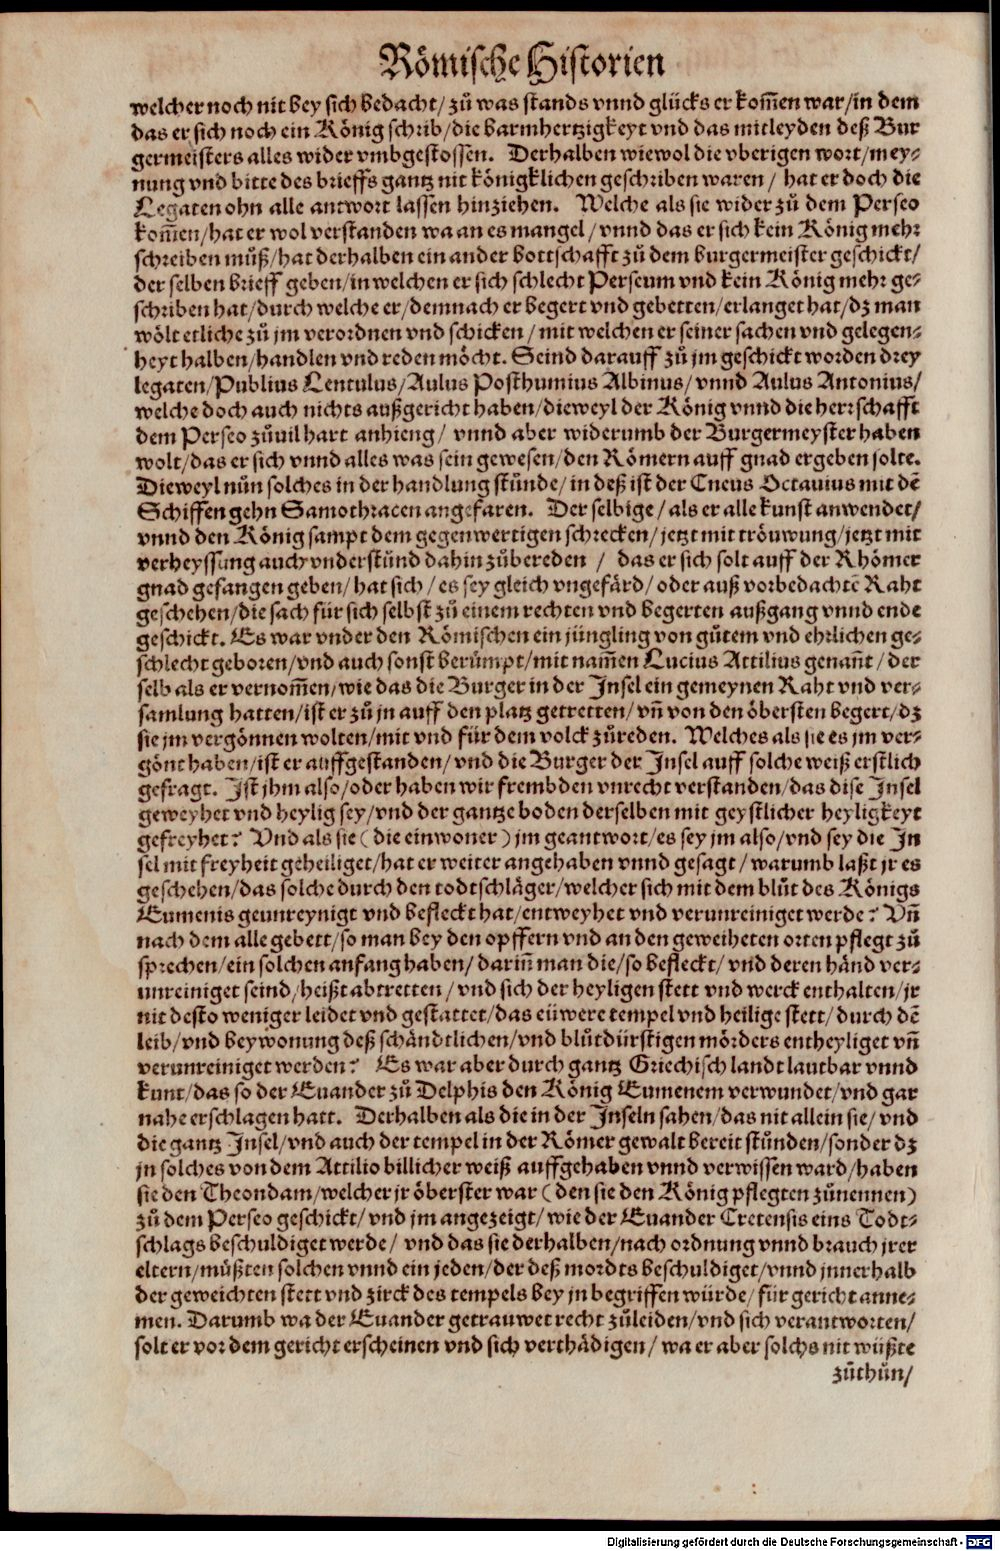 Römische Historien
welcher noch nit bey sich bedacht/ zů was stands vnnd glücks er kom̃en war/in dem
das er sich noch ein König schrib/die barmhertzigkeyt vnd das mitleyden deß Bur
germeisters alles wider vmbgestossen. Derhalben wiewol die vberigen wort/mey-
nung vnd bitte des brieffs gantz nit königklichen geschriben waren/ hat er doch die
Legaten ohn alle antwort lassen hinziehen. Welche als sie wider zů dem Perseo
kom̃en/hat er wol verstanden wa an es mangel/vnnd das er sich kein König mehr
schreiben můß/hat derhalben ein ander bottschafft zů dem burgermeister geschickt/
der selben brieff geben/in welchen er sich schlecht Perseum vnd kein König mehr ge-
schriben hat/durch welche er/demnach er begert vnd gebetten/erlanget hat/dz man
wölt etliche zů jm verordnen vnd schicken/mit welchen er seiner sachen vnd gelegen-
heyt halben/handlen vnd reden möcht. Seind darauff zů jm geschickt worden drey
legaten/Publius Lentulus/Aulus Posthumius Albinus/vnnd Aulus Antonius/
welche doch auch nichts außgericht haben/dieweyl der König vnnd die herrschafft
dem Perseo zůuil hart anhieng/ vnnd aber widerumb der Burgermeyster haben
wolt/das er sich vnnd alles was sein gewesen/den Römern auff gnad ergeben solte.
Dieweyl nůn solches in der handlung stůnde/in deß ist der Cneus Octauius mit dē
Schiffen gehn Samothracen angefaren. Der selbige/als er alle kunst anwendet/
vnnd den König sampt dem gegenwertigen schrecken/jetzt mit tröuwung/jetzt mit
verheyssung auch vnderstůnd dahin zůbereden / das er sich solt auff der Rhömer
gnad gefangen geben/hat sich/es sey gleich vngefärd/oder auß vorbedachtē Raht
geschehen/die sach für sich selbst zů einem rechten vnd begerten außgang vnnd ende
geschickt. Es war vnder den Römischen ein jüngling von gůtem vnd ehrlichen ge-
schlecht geboren/vnd auch sonst berümpt/mit nam̃en Lucius Attilius genañt/der
selb als er vernom̃en/wie das die Burger in der Insel ein gemeynen Raht vnd ver-
samlung hatten/ist er zů jn auff den platz getretten/vñ von den öbersten begert/dz
sie jm vergönnen wolten/mit vnd für dem volck zůreden. Welches als sie es jm ver-
gönt haben/ist er auffgestanden/vnd die Burger der Insel auff solche weiß erstlich
gefragt. Ist jhm also/oder haben wir frembden vnrecht verstanden/das dise Insel
geweyhet vnd heylig sey/vnd der gantze boden derselben mit geystlicher heyligkeyt
gefreyhet? Vnd als sie (die einwoner) jm geantwort/es sey jm also/vnd sey die In
sel mit freyheit geheiliget/hat er weiter angehaben vnnd gesagt/warumb laßt jr es
geschehen/das solche durch den todtschläger/welcher sich mit dem blůt des Königs
Eumenis geunreynigt vnd befleckt hat/entweyhet vnd verunreiniget werde? Vñ
nach dem alle gebett/so man bey den opffern vnd an den geweiheten orten pflegt zů
sprechen/ein solchen anfang haben/dariñ man die/so befleckt/vnd deren händ ver-
unreiniget seind/heißt abtretten/vnd sich der heyligen stett vnd werck enthalten/jr
nit desto weniger leidet vnd gestattet/das eüwere tempel vnd heilige stett/durch dē
leib/vnd beywonung deß schändtlichen/vnd blůtdürstigen mörders entheyliget vñ
verunreiniget werden? Es war aber durch gantz Griechisch landt lautbar vnnd
kunt/das so der Euander zů Delphis den König Eumenem verwundet/vnd gar
nahe erschlagen hatt. Derhalben als die in der Inseln sahen/das nit allein sie/vnd
die gantz Insel/vnd auch der tempel in der Römer gewalt bereit stůnden/sonder dz
jn solches von dem Attilio billicher weiß auffgehaben vnnd verwissen ward/haben
sie den Theondam/welcher jr öberster war (den sie den König pflegten zůnennen)
zů dem Perseo geschickt/vnd jm angezeigt/wie der Euander Cretensis eins Todt-
schlags beschuldiget werde/ vnd das sie derhalben/nach ordnung vnnd brauch jrer
eltern/müßten solchen vnnd ein jeden/der deß mordts beschuldiget/vnnd jnnerhalb
der geweichten stett vnd zirck des tempels bey jn begriffen würde/für gericht anne-
men. Darumb wa der Euander getrauwet recht zůleiden/vnd sich verantworten/
solt er vor dem gericht erscheinen vnd sich verthädigen/wa er aber solchs nit wüßte
zůthůn/
Digitalisierung gefördert durch die Deutsche Forschungsgemeinschaft - DFG